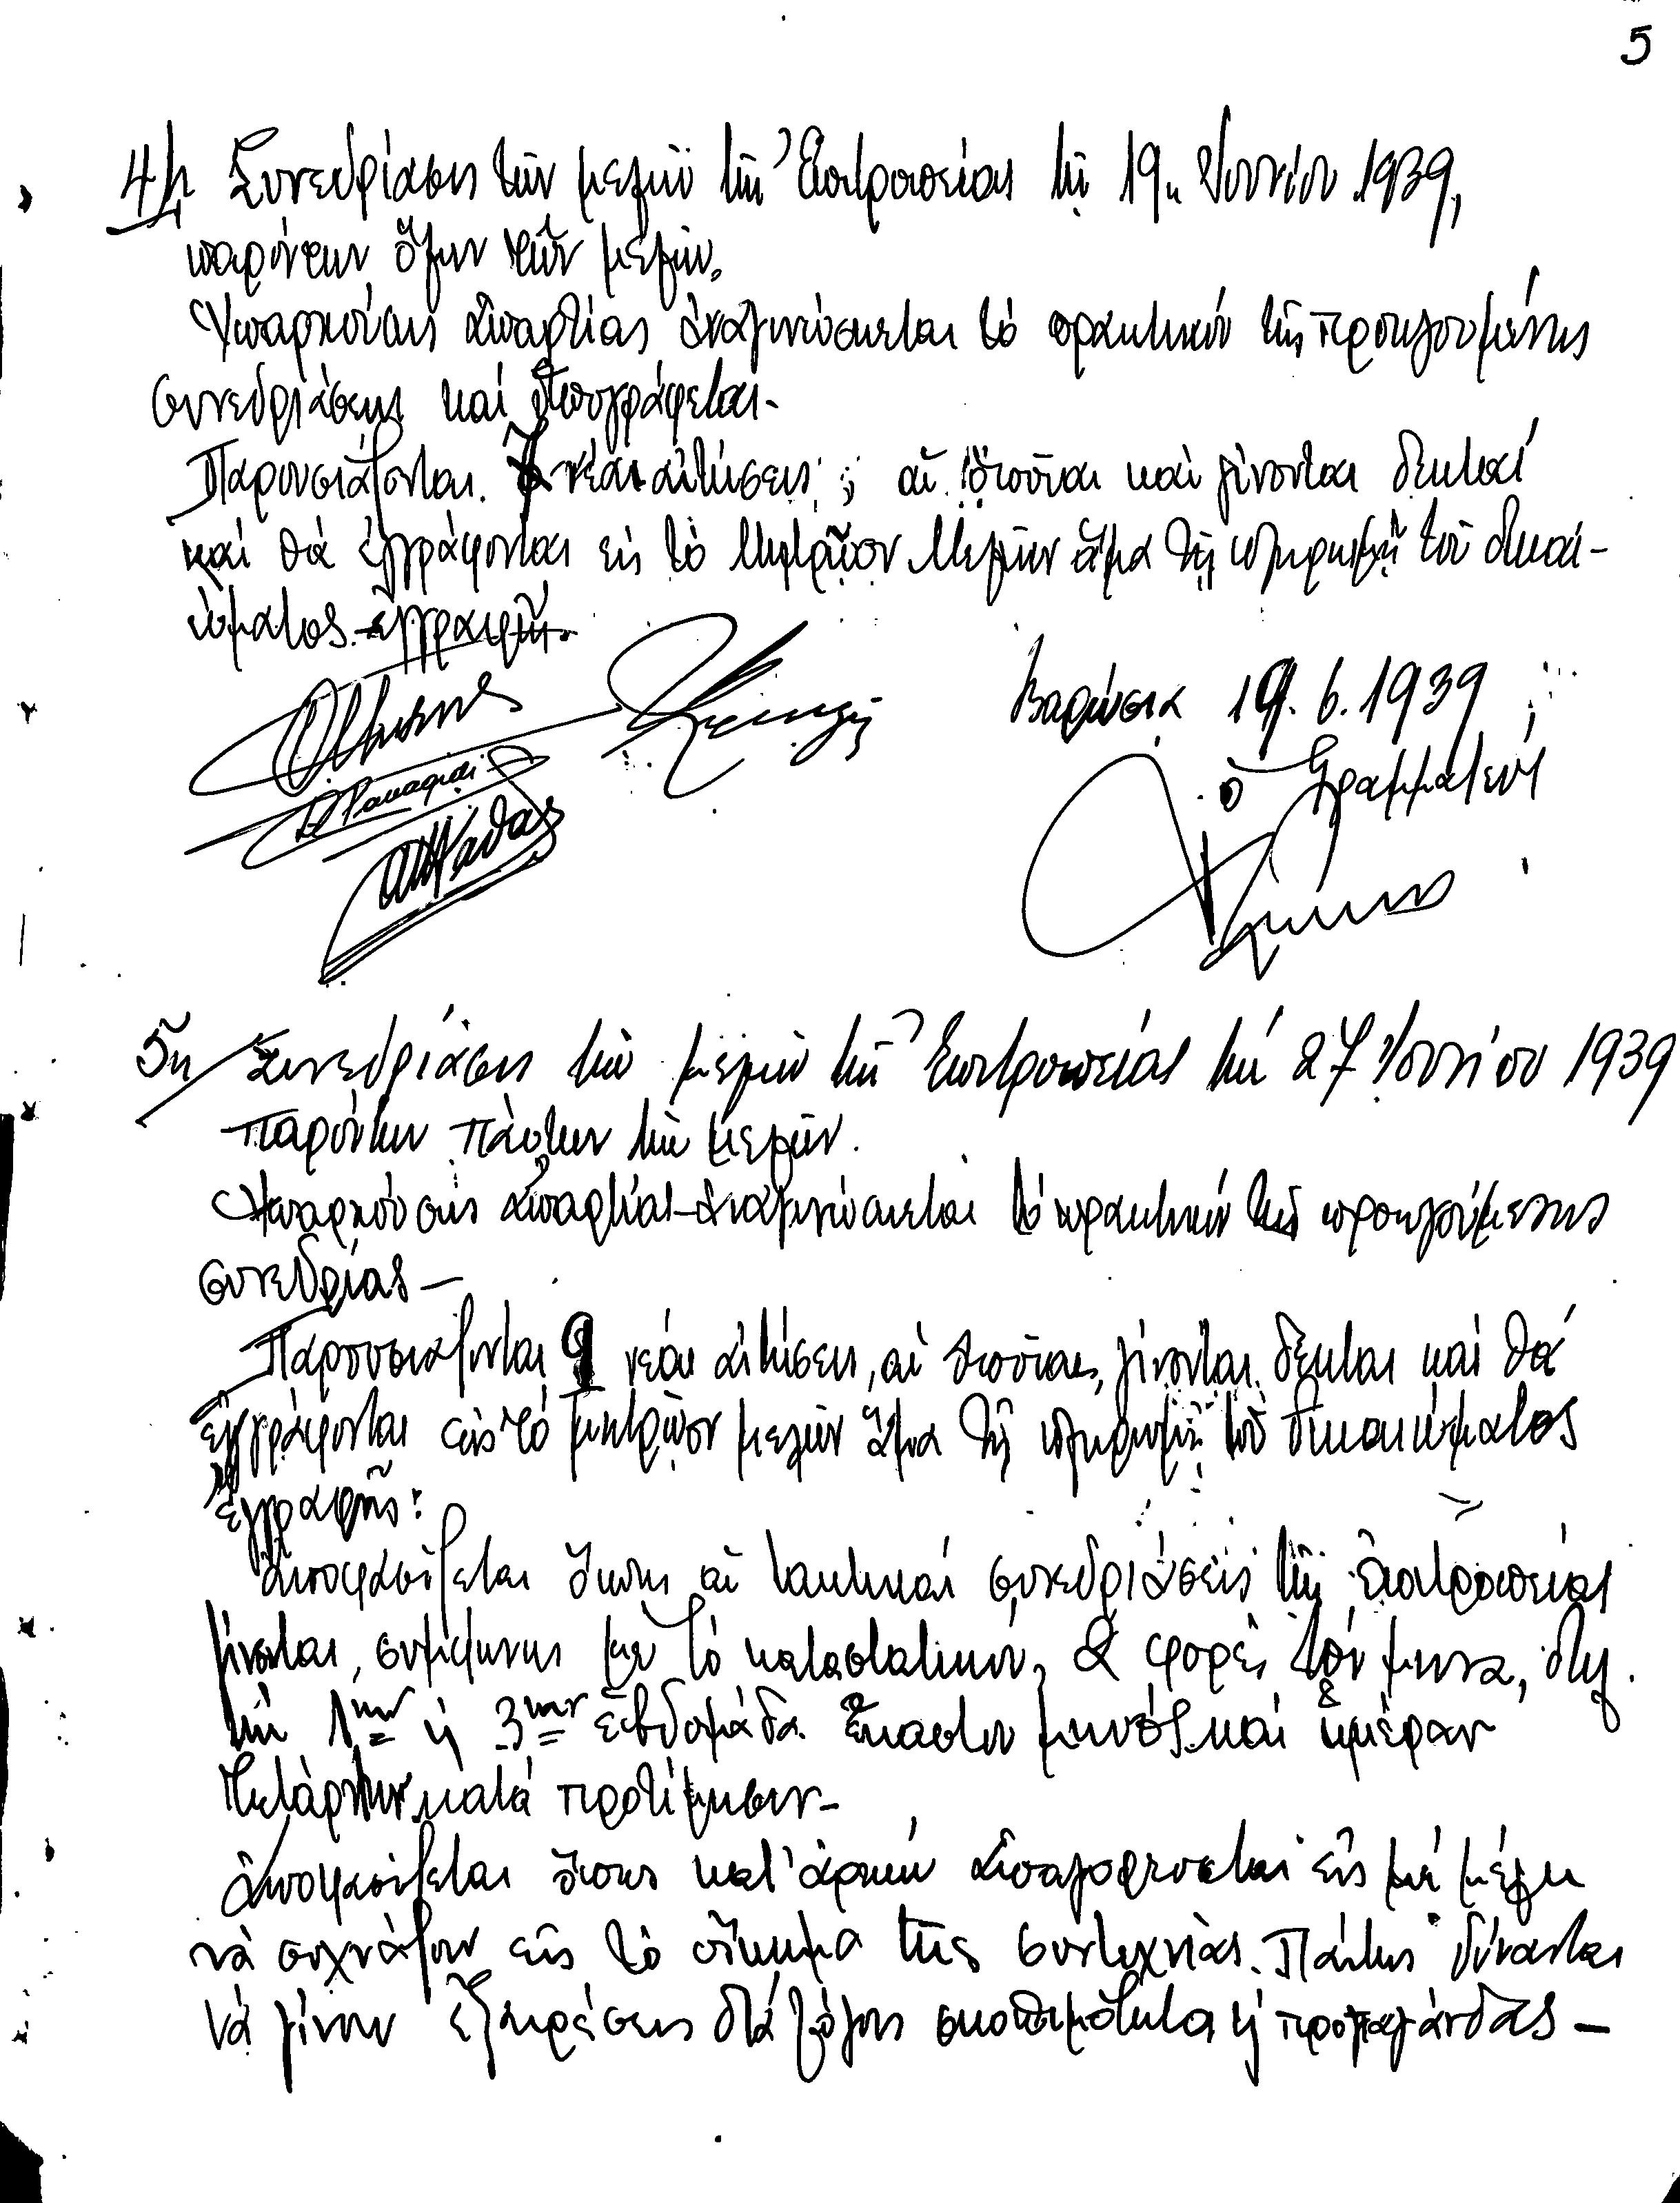 5
4η Συνεδρίασις τῶν μελῶν τῆς Ἐπιτροπείας τῇ 19η Ἰουνίου 1939,
παρόντων ὅλων τῶν μελῶν.
Ὑπαρχούσης ἀπαρτίας ἀναγινώσκεται τό πρακτικόν τῆς προηγουμένης
συνεδριάσεως καί ὑπογράφεται -
Παρουσιάζονται 7 νέαι αἰτήσεις, αἱ ὁποῖαι καί γίνονται δεκταί
καί θά ἐγγράφονται εἰς τό Μητρῷον Μελῶν ἅμα τῇ πληρωμῇ τοῦ δικαι-
ώματος ἐγγραφῆς.
Βαρώσια 19.6.1939
ὁ Γραμματεύς
5η Συνεδρίασις τῶν μελῶν τῆς Ἐπιτροπείας τήν 27 Ἰουνίου 1939
παρόντων πάντων τῶν μελῶν.
Ὑπαρχούσης ἀπαρτίας ἀναγινώσκεται τό πρακτικόν τῆς προηγούμενης
συνεδρίας -
Παρουσιάζονται 9 νέαι αἰτήσεις, αἱ ὁποῖαι, γίνονται δεκται καί θά
ἐγγράφονται εἰς τό μητρῷον μελῶν ἅμα τῇ πληρωμῇ τοῦ δικαιώματος
ἐγγραφῆς:
Ἀποφασίζεται ὅπως αἱ τακτικαί συνεδριάσεις τῆς ἐπιτροπείας
γίνονται, συμφώνως μέ τό καταστατικόν, 2 φορές τόν μήνα, δηλ.
τήν 1ην ἤ 3ην ἑβδομάδα ἑκάστου μηνός καί ἡμέραν
Τετάρτην κατά προτίμησιν -
Ἀποφασίζεται ὅπως κατ' ἀρχήν ἀπαγορευεται εἰς μή μέλη
νά συχνάζουν εἰς τό οἴκημα τῆς συντεχνίας. Πάντως δύνανται
νά γίνουν ἐξαιρέσεις διά λόγους σκοπιμότητα ἤ προπαγάνδας -